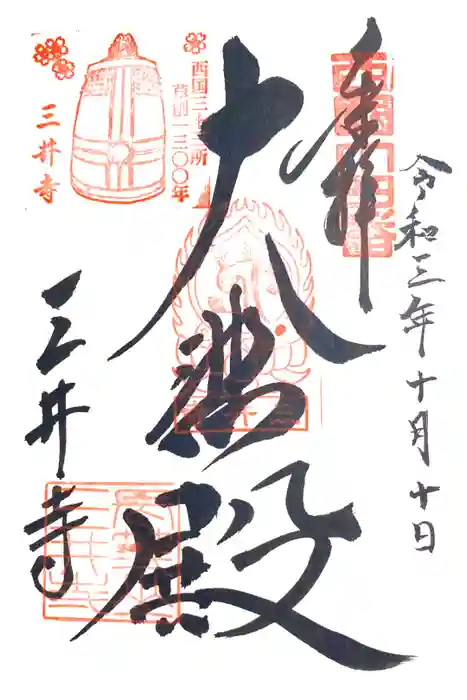 奉拝
令和三年十月十日
大悲殿
西国三十三所
草創一三〇〇年
三井寺
三井寺